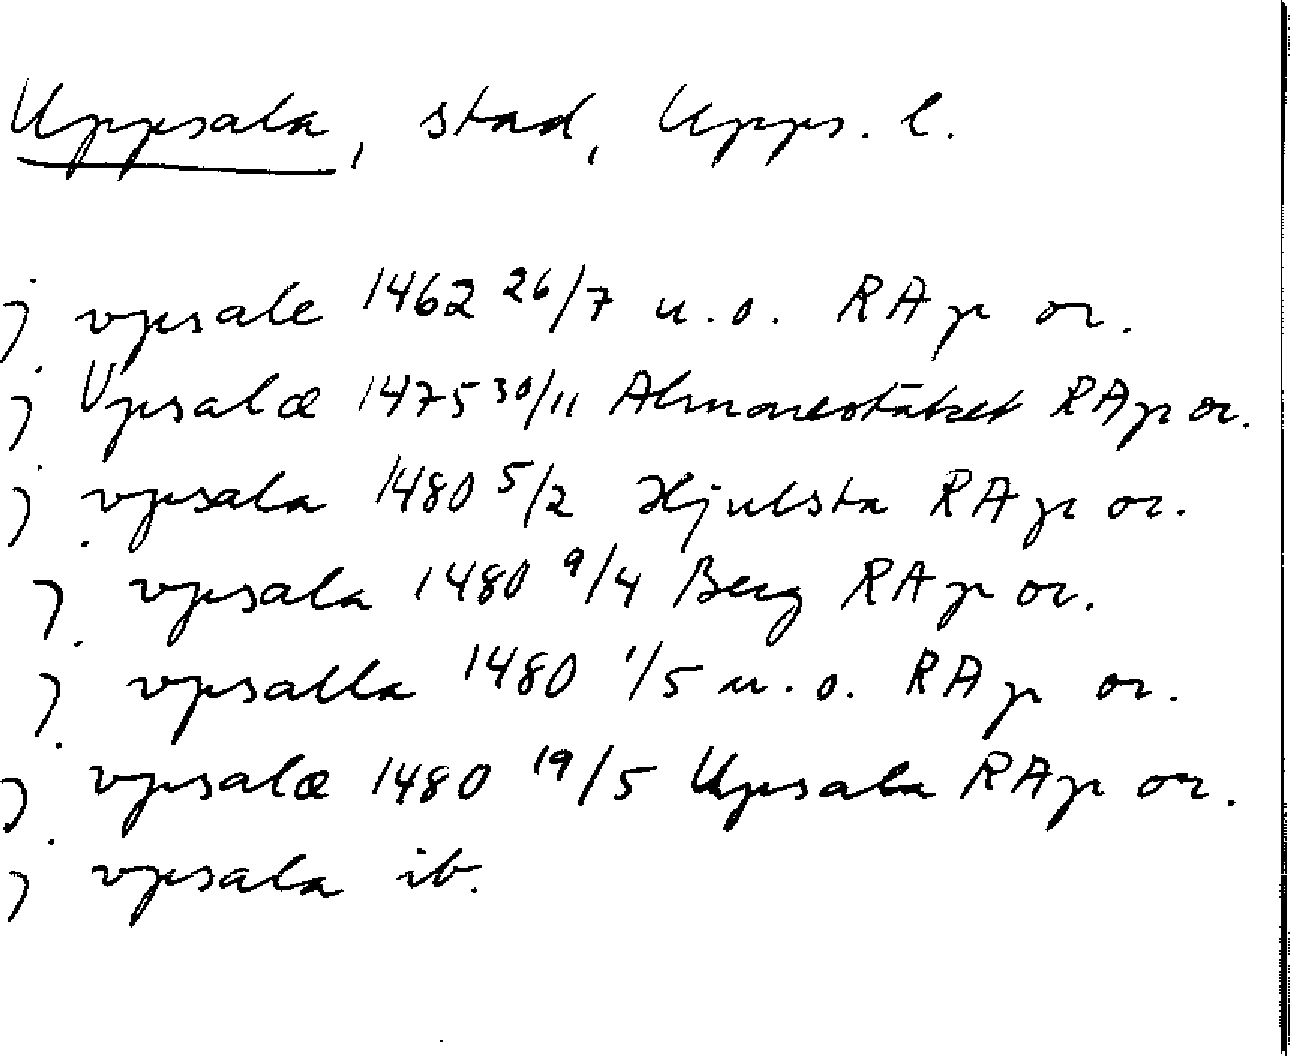 Uppsala, stad, Upps. l.
j vpsale 1462 26/7 u.o. RAp or.
j Vpsalæ 1475 30/11 Almarestäket RAp or.
j vpsala 1480 5/2 Hjulsta RAp or.
j vpsala 1480 9/4 Berg RAp or.
j vpsalla 1480 1/5 u.o. RAp or.
j vpsalæ 1480 19/5 Upsala RAp or.
j vpsala ib.